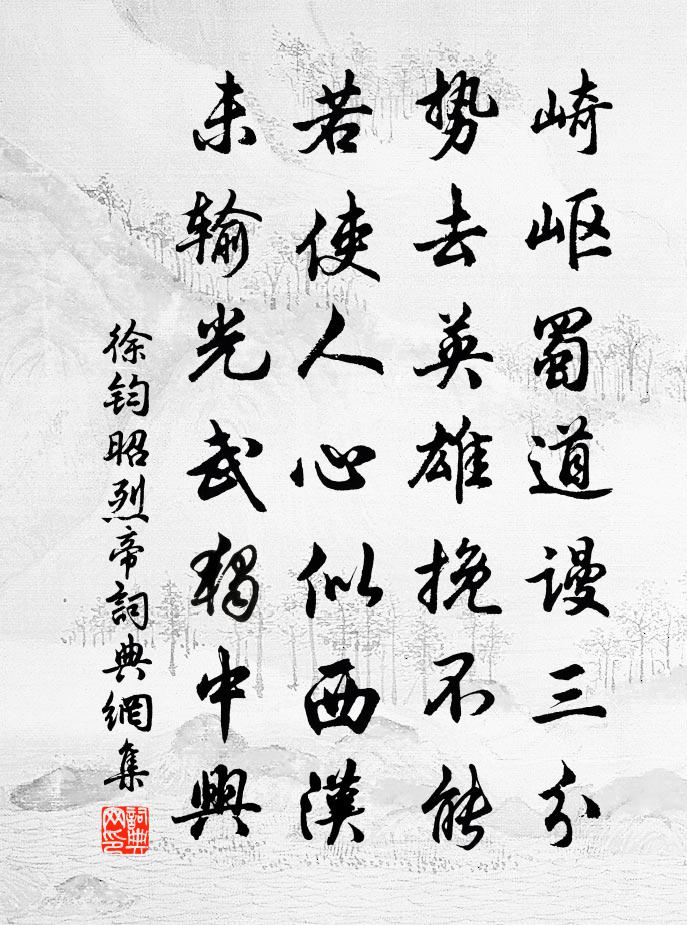 崎岖蜀道谩三分
势去英雄挽不能
若使人心似西漢
未输光武獨中興
徐钧昭烈帝詞典網集
詞典网印